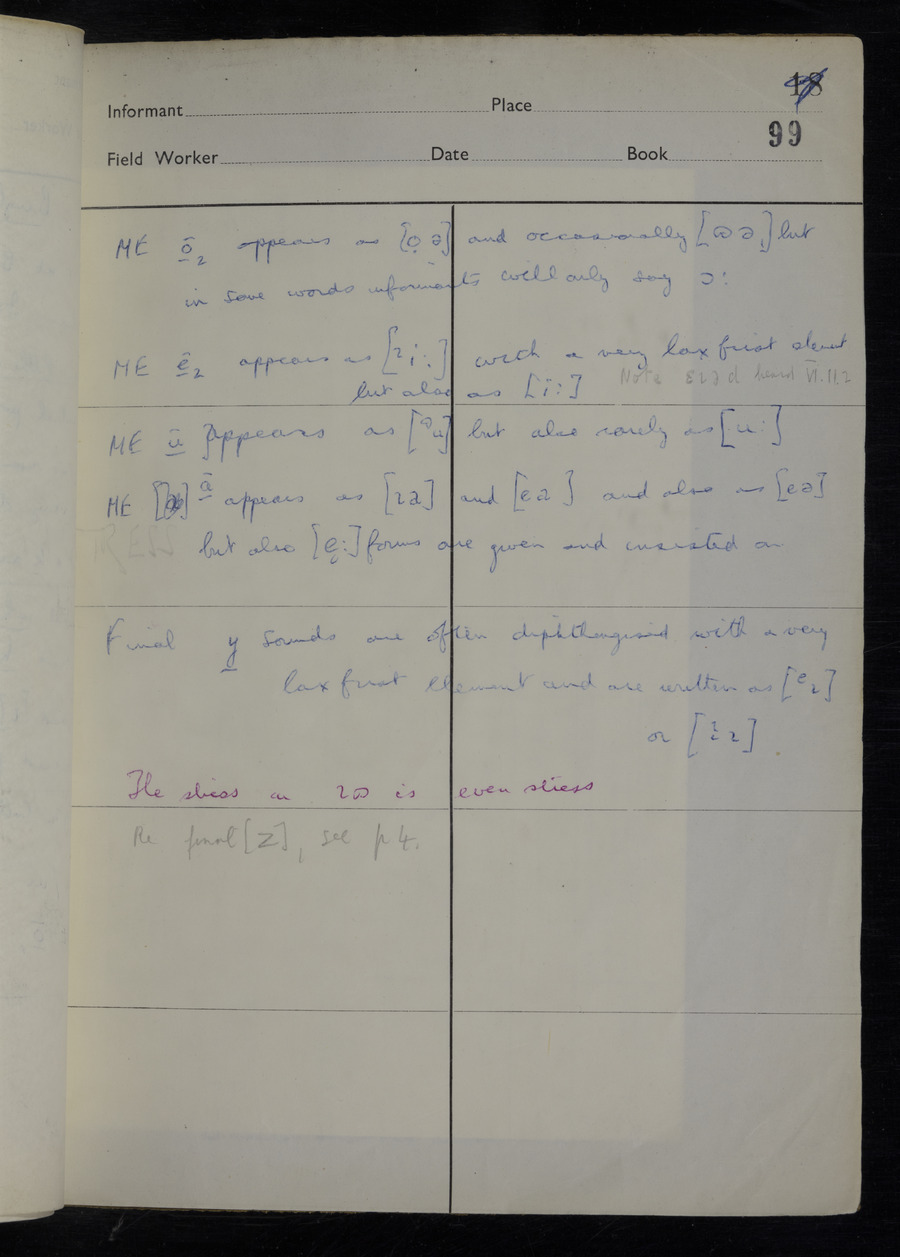 18
Informant Place
99
Field Worker Date Book
ME ō₂ appears as [o̞ ə] and occasionally [ɷ ə] but
in some words informants will only say ɔ:
ME ē₂ appears as [ɩ i:] with a very lax first element
but also as [ï:] Note ɛɩəd heard VI.11.2
ME ū appears as [ᵊu] but also rarely as [u:]
ME ā appears as [ɩa] and [ea] and also as [eə]
but also [e̞:] forms are given and insisted on
Final y sounds are often diphthongised with a very
lax first element and are written as [ᵉɩ]
or [ɩ̈ ɩ]
The stress on ɩɷ is even stress
Re final [z], see p 4.